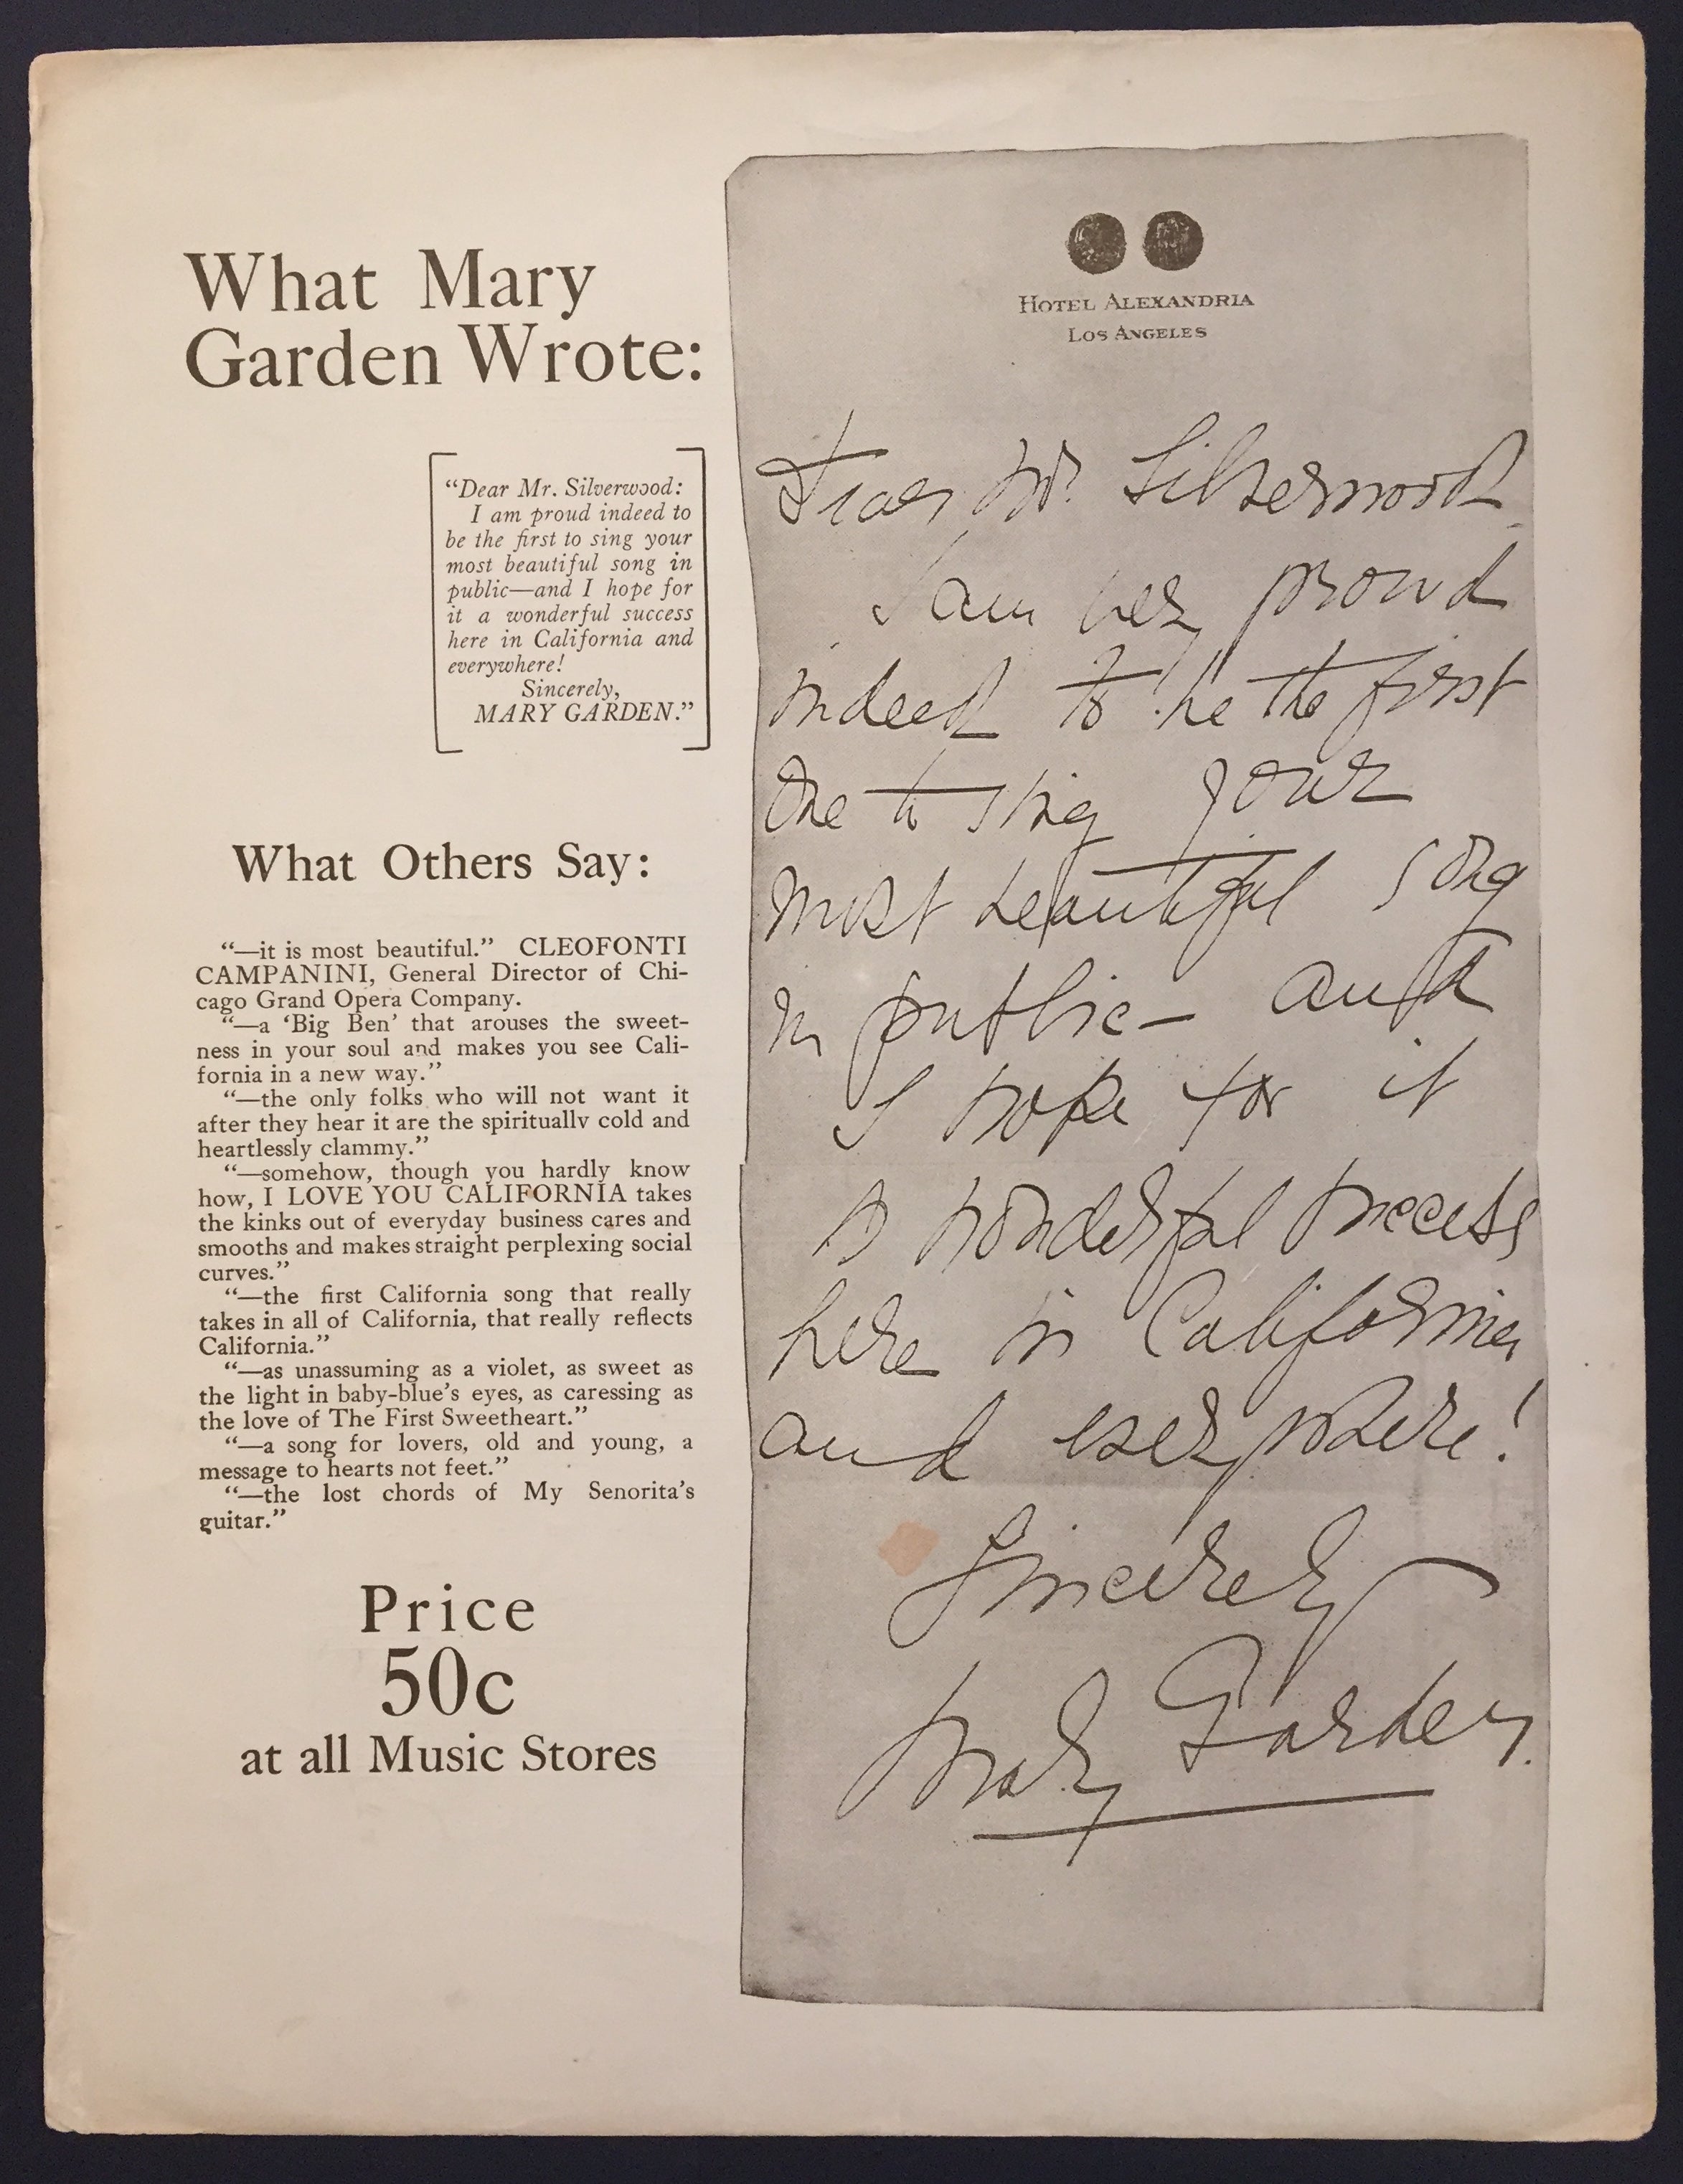 What Mary
Garden Wrote:
“Dear Mr. Silverwood:
I am proud indeed to
be the first to sing your
most beautiful song in
public—and I hope for
it a wonderful success
here in California and
everywhere!
Sincerely,
MARY GARDEN.”
What Others Say:
“—it is most beautiful.” CLEOFONTI
CAMPANINI, General Director of Chi-
cago Grand Opera Company.
“—a ‘Big Ben’ that arouses the sweet-
ness in your soul and makes you see Cali-
fornia in a new way.”
“—the only folks who will not want it
after they hear it are the spiritually cold and
heartlessly clammy.”
“—somehow, though you hardly know
how, I LOVE YOU CALIFORNIA takes
the kinks out of everyday business cares and
smooths and makes straight perplexing social
curves.”
“—the first California song that really
takes in all of California, that really reflects
California.”
“—as unassuming as a violet, as sweet as
the light in baby-blue’s eyes, as caressing as
the love of The First Sweetheart.”
“—a song for lovers, old and young, a
message to hearts not feet.”
“—the lost chords of My Senorita’s
guitar.”
Price
50c
at all Music Stores
HOTEL ALEXANDRIA
LOS ANGELES
Dear Mr. Silverwood
I am very proud
indeed to be the first
one to sing your
most beautiful song
in public — and
I hope for it
a wonderful success
here in California
and everywhere!
Sincerely
Mary Garden.